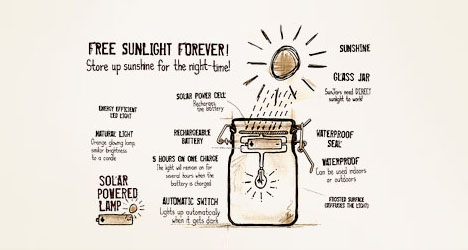 FREE SUNLIGHT FOREVER!
Store up sunshine for the night-time!
SUNSHINE
GLASS JAR
SunJars need DIRECT
sunlight to work!
SOLAR POWER CELL
Recharges
the battery
ENERGY EFFICIENT
LED LIGHT
NATURAL LIGHT
Orange glowing lamp
similar brightness
to a candle
RECHARGEABLE
BATTERY
WATERPROOF
SEAL
5 HOURS ON ONE CHARGE
The light will remain on for
several hours when the
battery is charged
WATERPROOF
Can be used indoors
or outdoors
SOLAR
POWERED
LAMP
AUTOMATIC SWITCH
Lights up automatically
when it gets dark
FROSTED SURFACE
(DIFFUSES THE LIGHT)